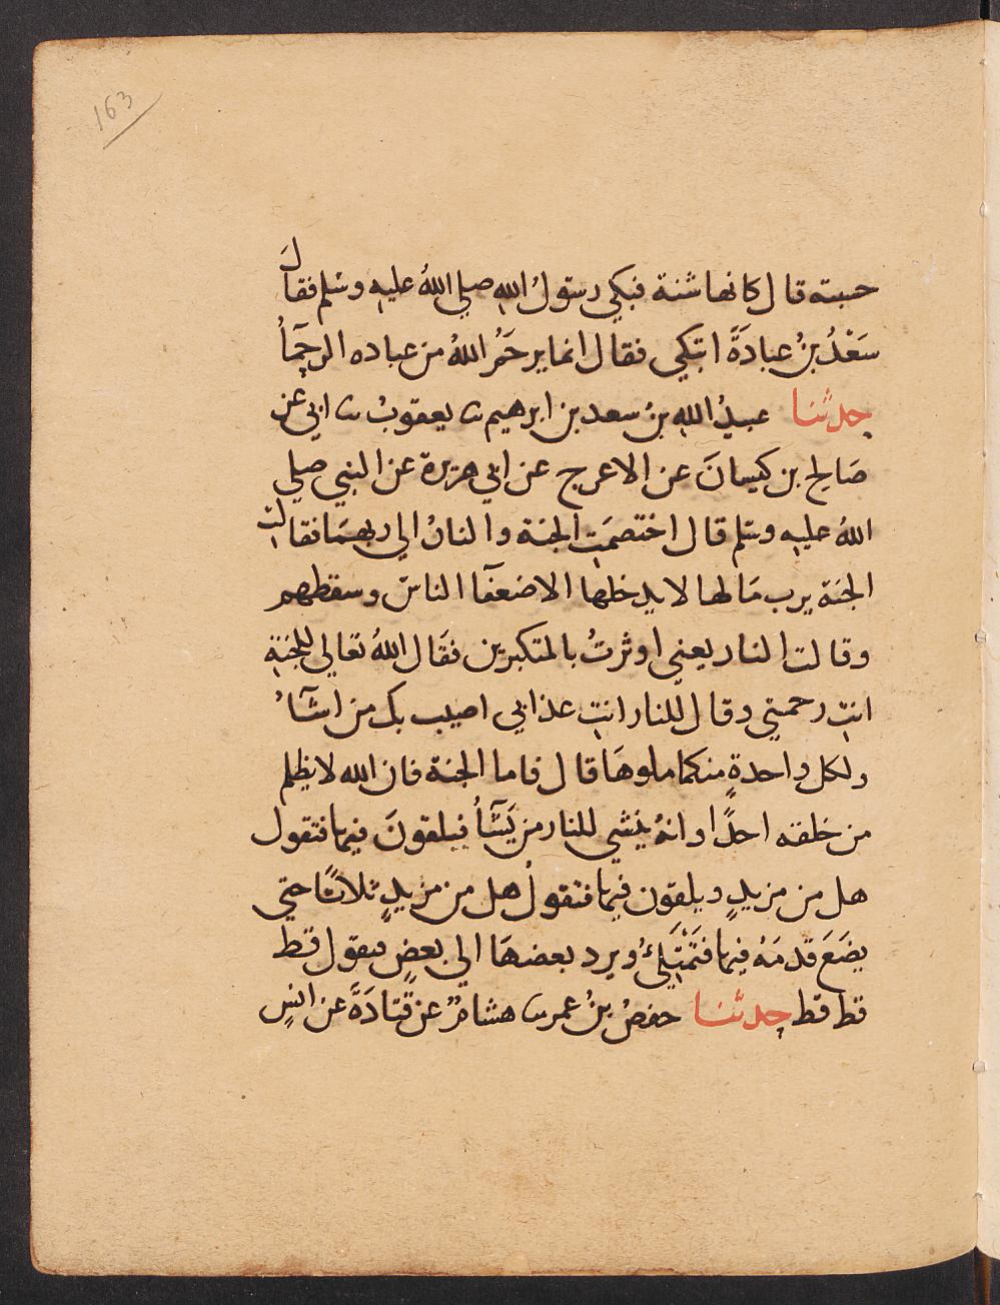 163
حسبته قال كانها شنة فبكي رسولُ الله صلي اللهُ عليه وسلم فقالَ
سَعْدُ بنُ عبادَةَ اتبكي فقال انما يرحَمُ اللهُ من عباده الرحمآُ
حدثنا عبيدُ الله بنُ سعد بن ابرهيم ثنا يعقوبُ ثنا ابي عن
صَالح بن كيسانَ عن الاعرج عن ابي هريرة عن النبي صلي
اللهُ عليه وسلم قال اختصمَت الجنة والنارُ الي ربهمَا فقالت
الجنة يرب مَا لها لا يدخلها الا ضعفآ الناس وسقطهم
وقالت النار يعني اوثرتُ بالمتكبرين فقَال اللهُ تعالي للجنة
انتِ رحمتي وقال للنار انتِ عذابي اصيب بك من اشآُ
ولكل واحدةٍ منكما ملوهَا قال فاما الجنة فان الله لا يظلم
من خلقه احدًا وانهُ ينشي للنار من يَشَآُ فيلقونَ فيها فتقول
هل من مزيدٍ ويلقون فيها فتقولُ هل من مزيدٍ ثلاثًا حتي
يضَعَ قدمَهُ فيها فتَمْتَلِيُ ويرد بعضهَا الي بعضٍ فيقول قط
قط قط حدثنا حفصُ بنُ عمر ثنا هشامٌ عن قتادَةَ عن انسٍ